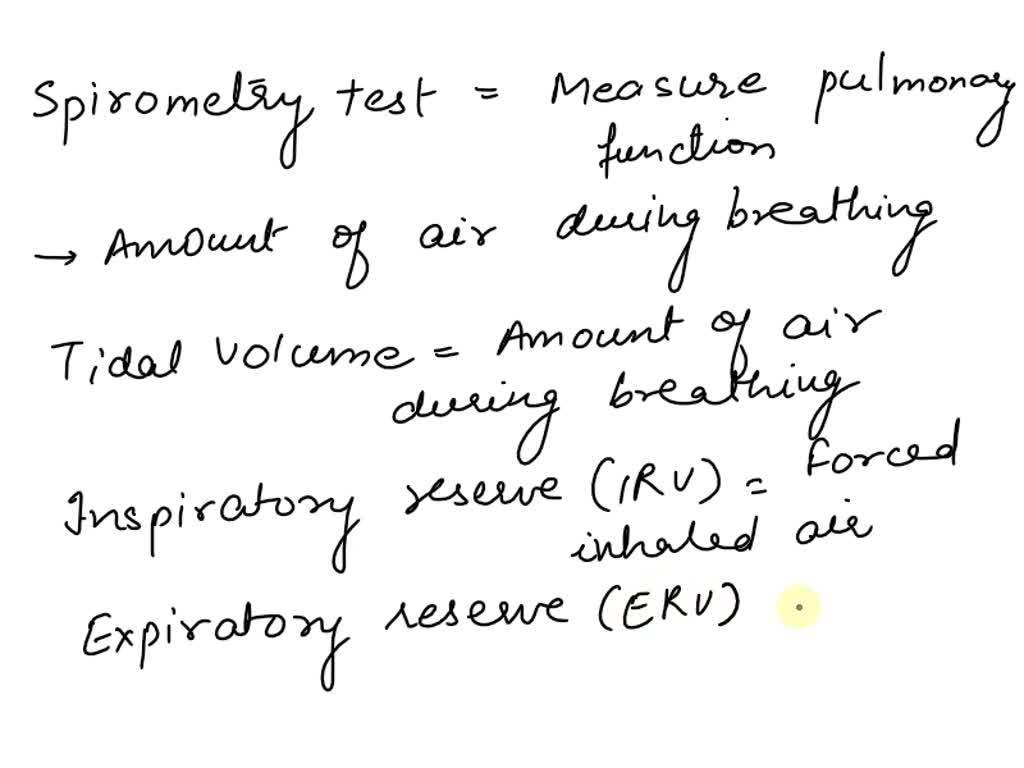 Spirometry test = Measure pulmonary
function
→ Amount of air during breathing
Tidal volume = Amount of air
during breathing
Inspiratory reserve (IRV) = Forced
inhaled air
Expiratory reserve (ERV)